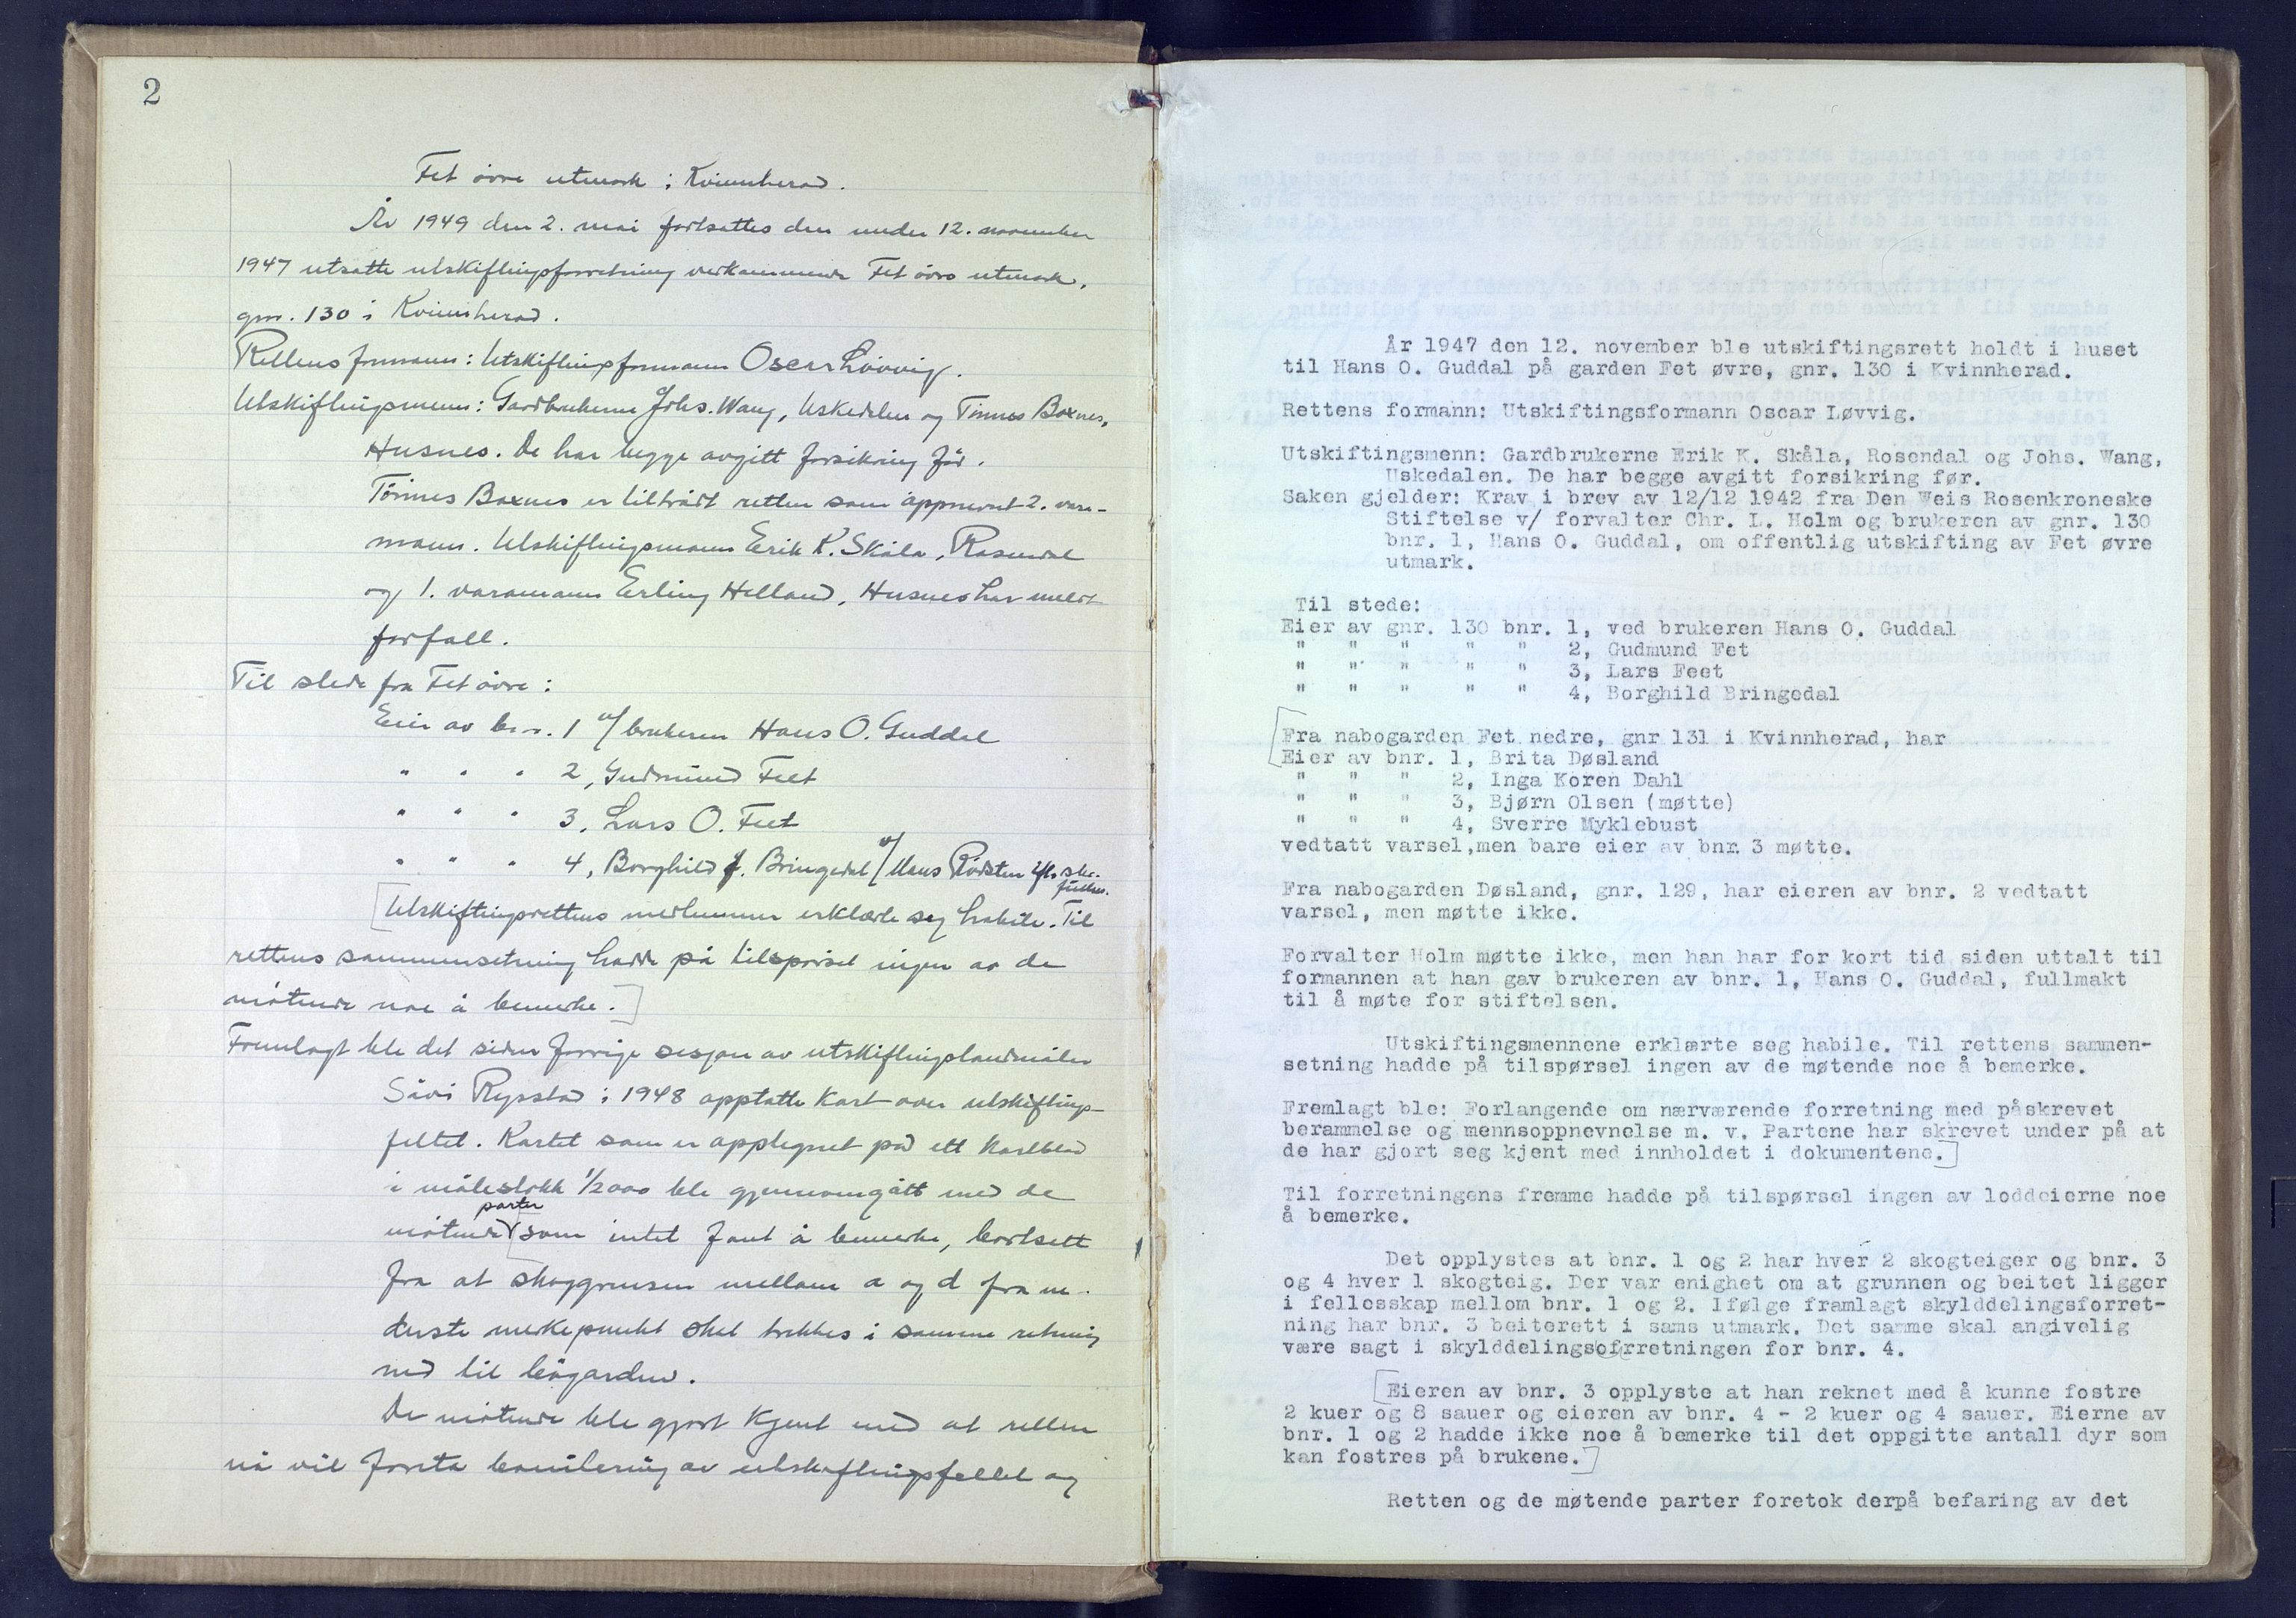 2
Fet øvre utmark i Kvinnherad.
År 1949 den 2. mai fortsattes den under 12. november
1947 utsatte utskiftingsforretning vedkommende Fet øvre utmark,
gnr. 130 i Kvinnherad.
Rettens formann: Utskiftingsformann Oscar Løvvig.
Utskiftingsmenn: Gardbrukerne Johs. Wang, Uskedalen og Tønnes Boxnes,
Husnes. De har begge avgitt forsikring før.
Tønnes Boxnes er tiltrådt retten som oppnevnt 2. vara-
mann. Utskiftingsmann Erik K. Skåla, Rosendal
og 1. varamann Erling Helland, Husnes har meldt
forfall.
Til stede fra Fet øvre:
Eier av bnr. 1 v/ brukeren Hans O. Guddal
" " " 2, Gudmund Feet
" " " 3, Lars O. Feet
" " " 4, Borghild J. Bringedal v/ Mons
[Utskiftingsrettens medlemmer erklærte seg habile. Til
rettens sammensetning hadde på tilspørsel ingen av de
møtende noe å bemerke.]
Fremlagt ble det siden forrige sesjon av utskiftingslandmåler
Såvi Rysstad i 1948 opptatte kart over utskiftings-
feltet. Kartet som er opptegnet på ett kartblad
i målestokk 1/2000 ble gjennomgått med de
parter
møtende [som intet fant å bemerke, bortsett
fra at skoggrensen mellom a og d fra ne-
derste merkepunkt skal trekkes i samme retning
ned til bøgarden.
De møtende ble gjort kjent med at retten
nå vil foreta bonitering av utskiftingsfeltet og
År 1947 den 12. november ble utskiftingsrett holdt i huset
til Hans O. Guddal på garden Fet øvre, gnr. 130 i Kvinnherad.
Rettens formann: Utskiftingsformann Oscar Løvvig.
Utskiftingsmenn: Gardbrukerne Erik K. Skåla, Rosendal og Johs. Wang,
Uskedalen. De har begge avgitt forsikring før.
Saken gjelder: Krav i brev av 12/12 1942 fra Den Weis Rosenkroneske
Stiftelse v/ forvalter Chr. L. Holm og brukeren av gnr. 130
bnr. 1, Hans O. Guddal, om offentlig utskifting av Fet øvre
utmark.
Til stede:
Eier av gnr. 130 bnr. 1, ved brukeren Hans O. Guddal
" " " " " 2, Gudmund Fet
" " " " " 3, Lars Feet
" " " " " 4, Borghild Bringedal
[Fra nabogarden Fet nedre, gnr 131 i Kvinnherad, har
Eier av bnr. 1, Brita Døsland
" " " 2, Inga Koren Dahl
" " " 3, Bjørn Olsen (møtte)
" " " 4, Sverre Myklebust
vedtatt varsel,men bare eier av bnr. 3 møtte.
Fra nabogarden Døsland, gnr. 129, har eieren av bnr. 2 vedtatt
varsel, men møtte ikke.
Forvalter Holm møtte ikke, men han har for kort tid siden uttalt til
formannen at han gav brukeren av bnr. 1, Hans O. Guddal, fullmakt
til å møte for stiftelsen.
Utskiftingsmennene erklærte seg habile. Til rettens sammen-
setning hadde på tilspørsel ingen av de møtende noe å bemerke.
Fremlagt ble: Forlangende om nærværende forretning med påskrevet
berammelse og mennsoppnevnelse m. v. Partene har skrevet under på at
de har gjort seg kjent med innholdet i dokumentene.]
Til forretningens fremme hadde på tilspørsel ingen av loddeierne noe
å bemerke.
Det opplystes at bnr. 1 og 2 har hver 2 skogteiger og bnr. 3
og 4 hver 1 skogteig. Der var enighet om at grunnen og beitet ligger
i fellesskap mellom bnr. 1 og 2. Ifølge framlagt skylddelingsforret-
ning har bnr. 3 beiterett i sams utmark. Det samme skal angivelig
være sagt i skylddelingsofrretningen for bnr. 4.
[Eieren av bnr. 3 opplyste at han reknet med å kunne fostre
2 kuer og 8 sauer og eieren av bnr. 4 - 2 kuer og 4 sauer. Eierne av
bnr. 1 og 2 hadde ikke noe å bemerke til det oppgitte antall dyr som
kan fostres på brukene.]
Retten og de møtende parter foretok derpå befaring av det